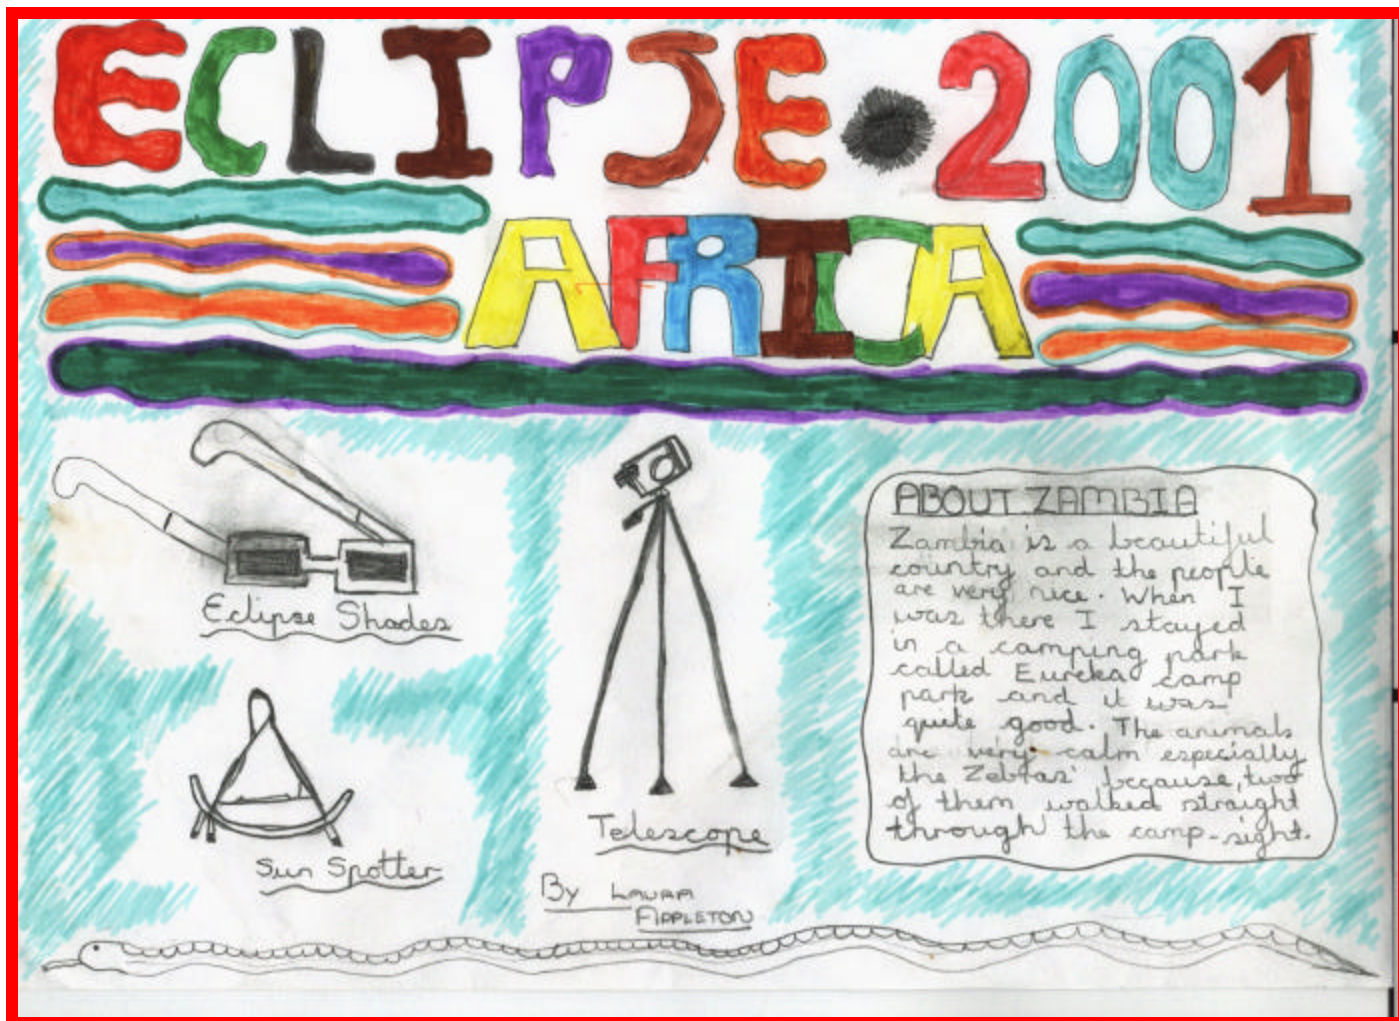 ECLIPSE 2001
AFRICA
Eclipse Shades
Sun Spotter
Telescope
By LAURA
APPLETON
ABOUT ZAMBIA
Zambia is a beautiful
country and the people
are very nice. When I
was there I stayed
in a camping park
called Eureka camp
park and it was
quite good. The animals
are very calm especially
the Zebras' because, two
of them walked straight
through the camp-sight.